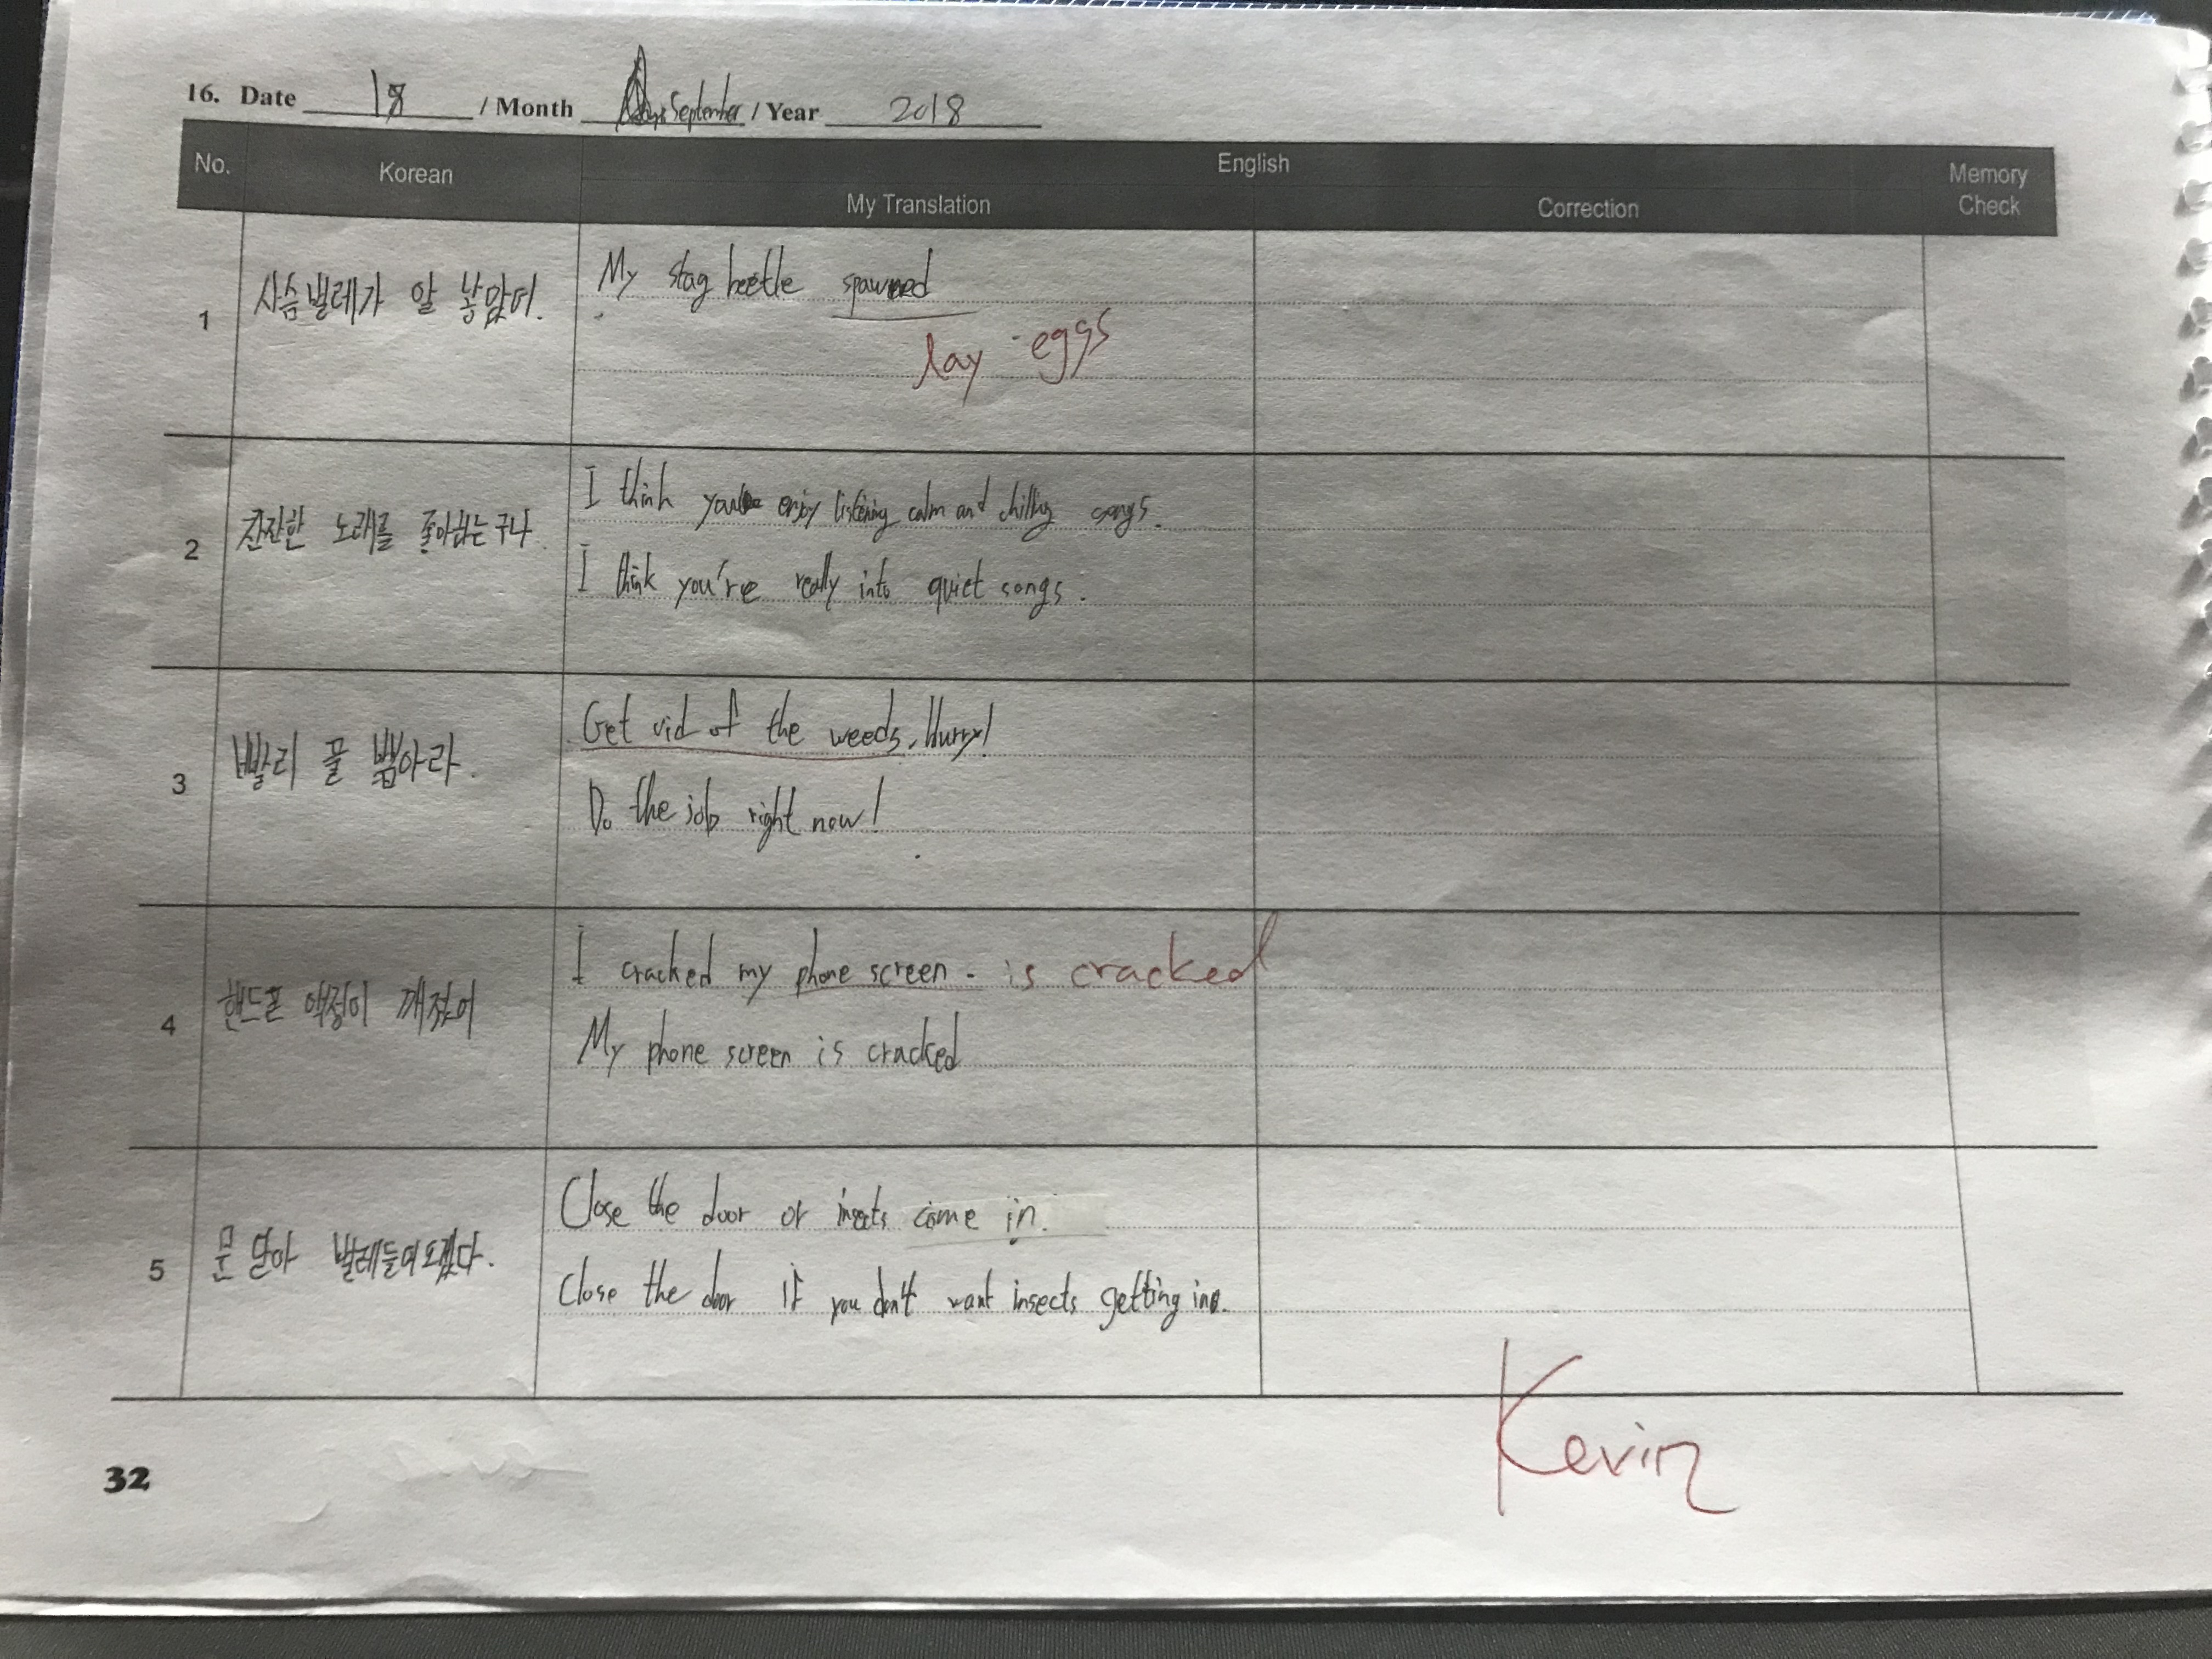 16. Date 18 / Month September / Year 2018
No. Korean English Memory Check
My Translation Correction
1 사슴벌레가 알 낳았어. My stag beetle spawned
lay eggs
2 잔잔한 노래를 좋아하는구나. I think you enjoy listening calm and chilling songs.
I think you're really into quiet songs.
3 빨리 풀 뽑아라. Get rid of the weeds. Hurry!
Do the job right now!
4 핸드폰 액정이 깨졌어 I cracked my phone screen. is cracked
My phone screen is cracked
5 문 닫아 벌레들어오겠다. Close the door or insects come in.
Close the door if you don't want insects getting in.
Kevin
32